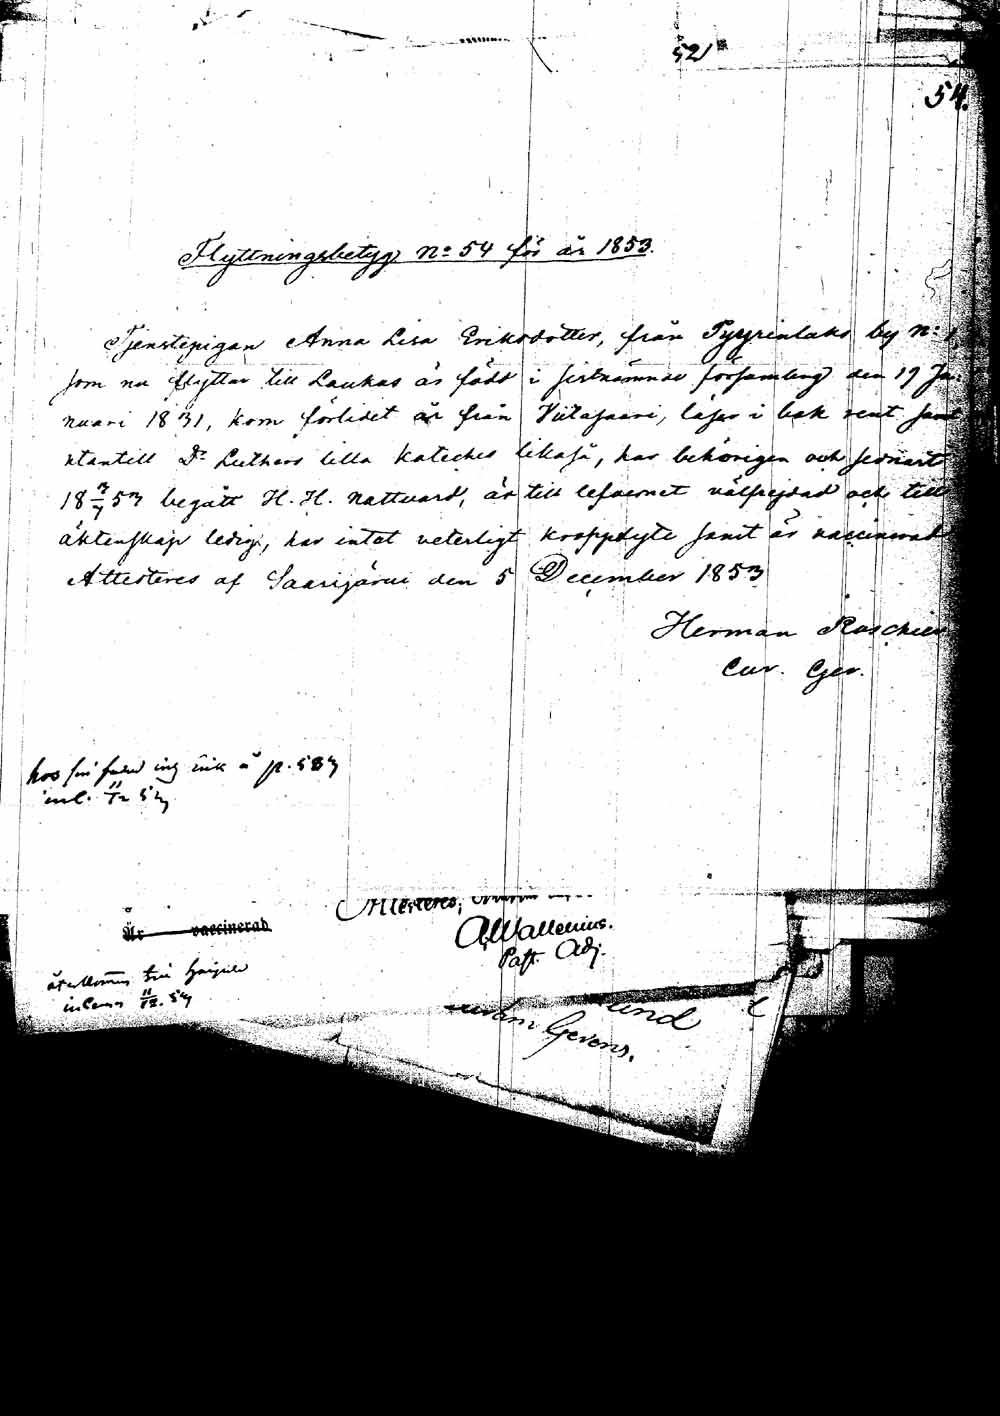 52
54.
Flyttningsbetyg No 54 för år 1853.
Tjenstepigan Anna Lisa Eriksdotter, från Pyyrinlaks by No
som nu flyttar till Laukas är född i sistnämnde församling den 19 Ja-
nuari 1831, kom förlidet år från Viitasaari, läser i bok rent samt
utantill Dr Luthers lilla kateches likaså, har behörigen och sednast
18 3/7 53 begått H. H. nattvard, är till lefvernet välfrejdad och till
äktenskap ledig, har intet veterligt kroppslyte samt är vaccinerad
Attesteras af Saarijärvi den 5 December 1853
Herman Roschier
Cur. Ger.
hos sin fader p. 587
inl. 11/12 53
Attesteras,
Är vaccinerad
AWallenius.
Past. Adj.
11/12. 53
und
Gerens.